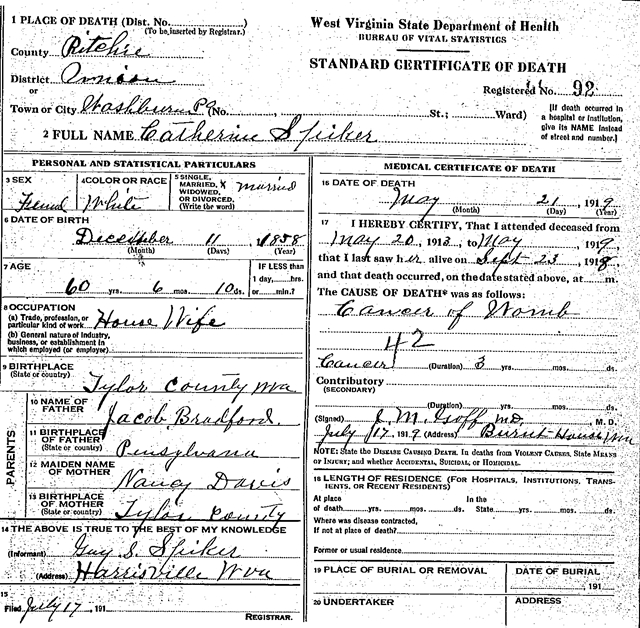 1 PLACE OF DEATH (Dist. No.
(To be inserted by Registrar.)
County Ritchie
District
or
Town or City Washburn (No. St.; Ward)
2 FULL NAME Catherine Spiker
West Virginia State Department of Health
BUREAU OF VITAL STATISTICS
STANDARD CERTIFICATE OF DEATH
Registered No. 92
[If death occurred in
a hospital or institution,
give its NAME instead
of street and number.]
PERSONAL AND STATISTICAL PARTICULARS
3 SEX
4 COLOR OR RACE White
5 SINGLE,
MARRIED, X married
WIDOWED,
OR DIVORCED.
(Write the word)
6 DATE OF BIRTH
December 11 1858
(Month) (Days) (Year)
7 AGE
60 yrs. 6 mos. 10 ds.
IF LESS than
1 day,....hrs.
or.......min.?
8 OCCUPATION
(a) Trade, profession, or
particular kind of work House Wife
(b) General nature of industry,
business, or establishment in
which employed (or employer)
9 BIRTHPLACE
(State or country)
Tylor County Wva
PARENTS
10 NAME OF
FATHER Jacob Bradford.
11 BIRTHPLACE
OF FATHER
(State or country) Pensylvana
12 MAIDEN NAME
OF MOTHER Nancy Davis
13 BIRTHPLACE
OF MOTHER
(State or country) Tylor County
14 THE ABOVE IS TRUE TO THE BEST OF MY KNOWLEDGE
(Informant) Guy S. Spiker
(Address) Harrisville Wva
15
Filed July 17, 191
REGISTRAR.
MEDICAL CERTIFICATE OF DEATH
16 DATE OF DEATH
May 21, 1919
(Month) (Day) (Year)
17 I HEREBY CERTIFY, That I attended deceased from
May 20, 1913, to May 1919,
that I last saw her alive on Sept 23 1918
and that death occurred, on the date stated above, at m.
The CAUSE OF DEATH* was as follows:
Cancer of Womb
42
Cancer (Duration) 3 yrs. mos. ds.
Contributory
(SECONDARY)
(Duration) yrs. mos. ds.
(Signed) J. M. Goff M.D. , M. D.
July 17, 1919 (Address) Burnt-House Wva
NOTE: State the DISEASE CAUSING DEATH. In deaths from VIOLENT CAUSES, State MEANS
OR INJURY; and whether ACCIDENTAL, SUICIDAL, OR HOMICIDAL.
18 LENGTH OF RESIDENCE (FOR HOSPITALS, INSTITUTIONS, TRANS-
IENTS, OR RECENT RESIDENTS)
At place In the
of death yrs. mos. ds. State yrs. mos. ds.
Where was disease contracted,
If not at place of death?
Former or usual residence
19 PLACE OF BURIAL OR REMOVAL
DATE OF BURIAL
, 191
20 UNDERTAKER
ADDRESS